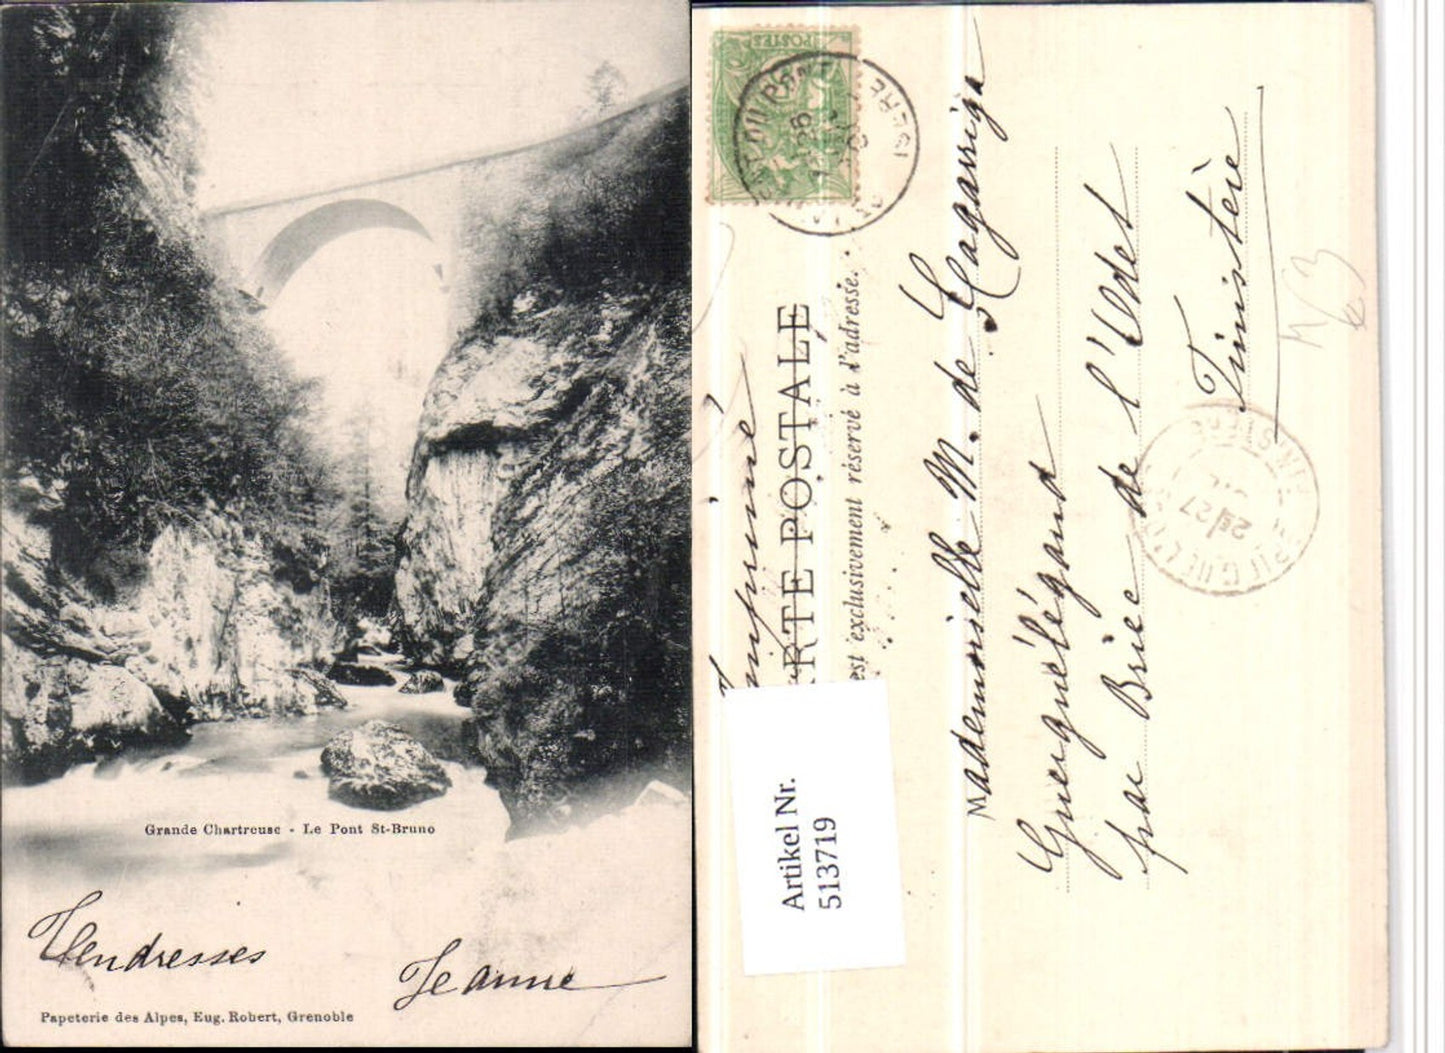 Grande Chartreuse - Le Pont St-Bruno
Tendresses
Jeanne
Papeterie des Alpes, Eug. Robert, Grenoble
POSTES
ISERE
RTE POSTALE
est exclusivement réservé à l'adresse.
Mademoiselle M. de Lagarriga
par Briec de l'Odet
Finistère
63
Artikel Nr.
513719